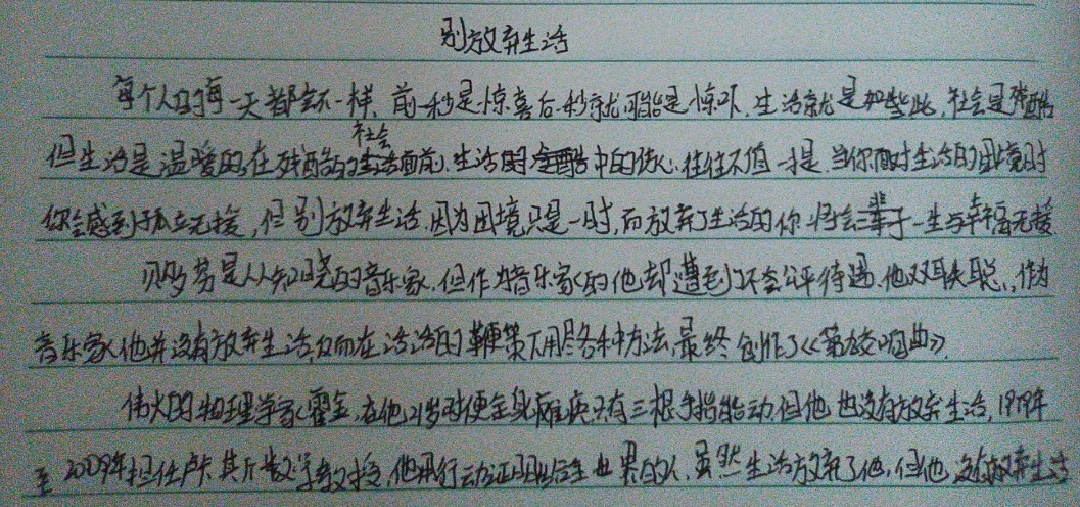 别放弃生活
每个人的每一天都会不一样,前一秒是惊喜后一秒就可能是惊吓,生活就是如此,社会是残酷
但生活是温暖的,在残酷的社会面前,生活中的你,往往不值一提,当你面对生活的困境时
你会感到孤立无援,但别放弃生活,因为困境只是一时,而放弃了生活的你将会一生与幸福无缘
贝多芬是人人知晓的音乐家,但作为音乐家的他却遭到了不公平待遇,他双耳失聪,作为
音乐家他并没有放弃生活反而在生活的鞭策下用尽各种方法,最终创作了《第九交响曲》
伟大的物理学家霍金,在他21岁时便全身瘫痪只有三根手指能动但他也没有放弃生活,1979年
至2009年担任卢卡其斯数学教授,他用行动证明给全世界的人,虽然生活放弃了他,但他没有放弃生活